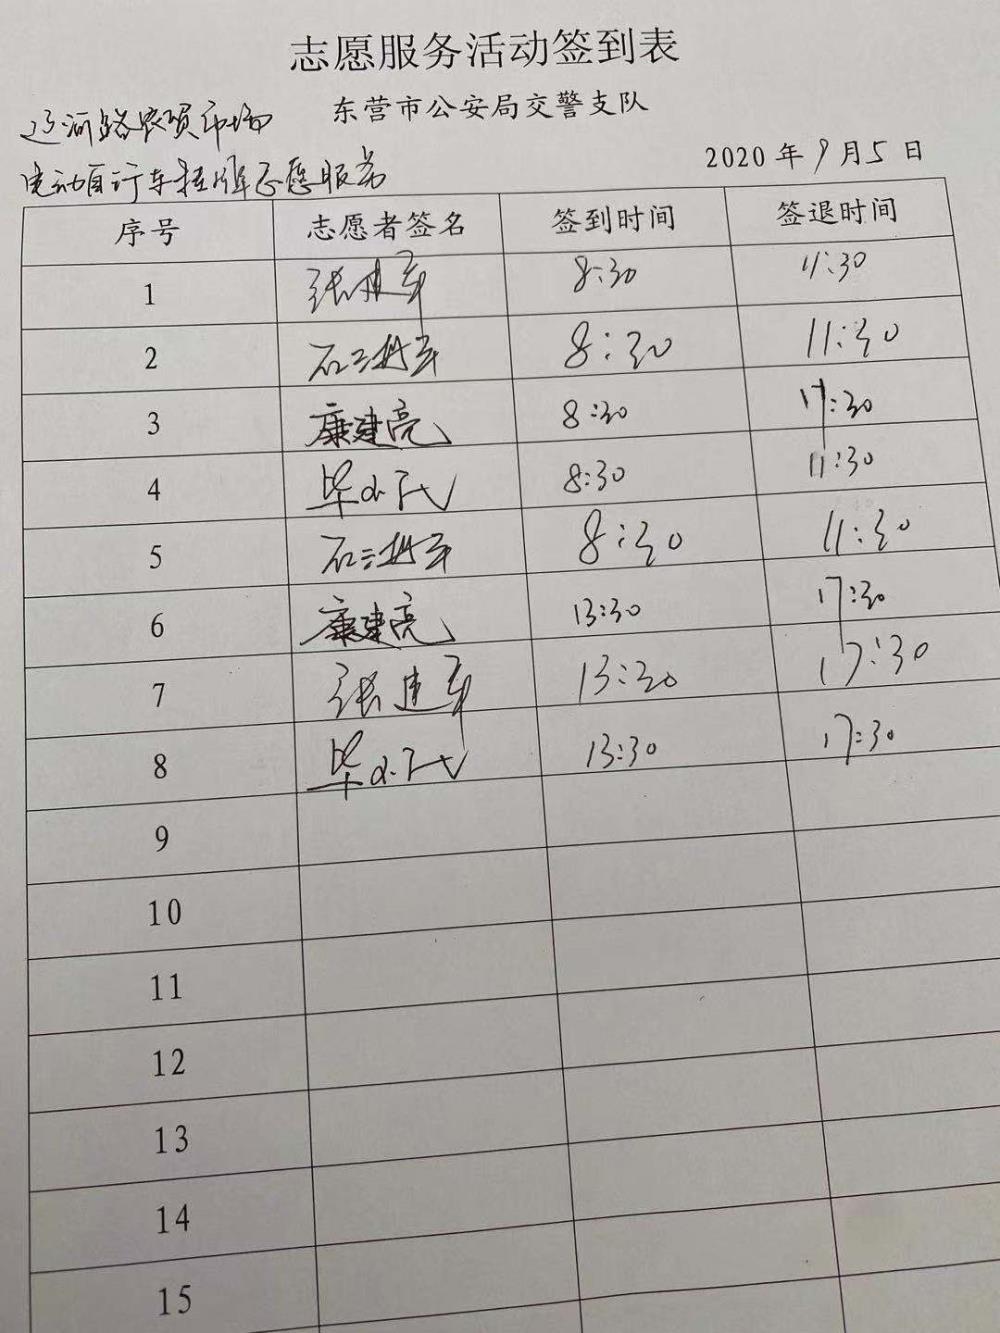 志愿服务活动签到表
东营市公安局交警支队
辽河路农贸市场
电动自行车挂牌志愿服务
2020 年 9 月 5 日
序号 志愿者签名 签到时间 签退时间
1 张建军 8:30 11:30
2 8:30 11:30
3 康建亮 8:30 11:30
4 8:30 11:30
5 8:30 11:30
6 康建亮 13:30 17:30
7 张建军 13:30 17:30
8 13:30 17:30
9
10
11
12
13
14
15